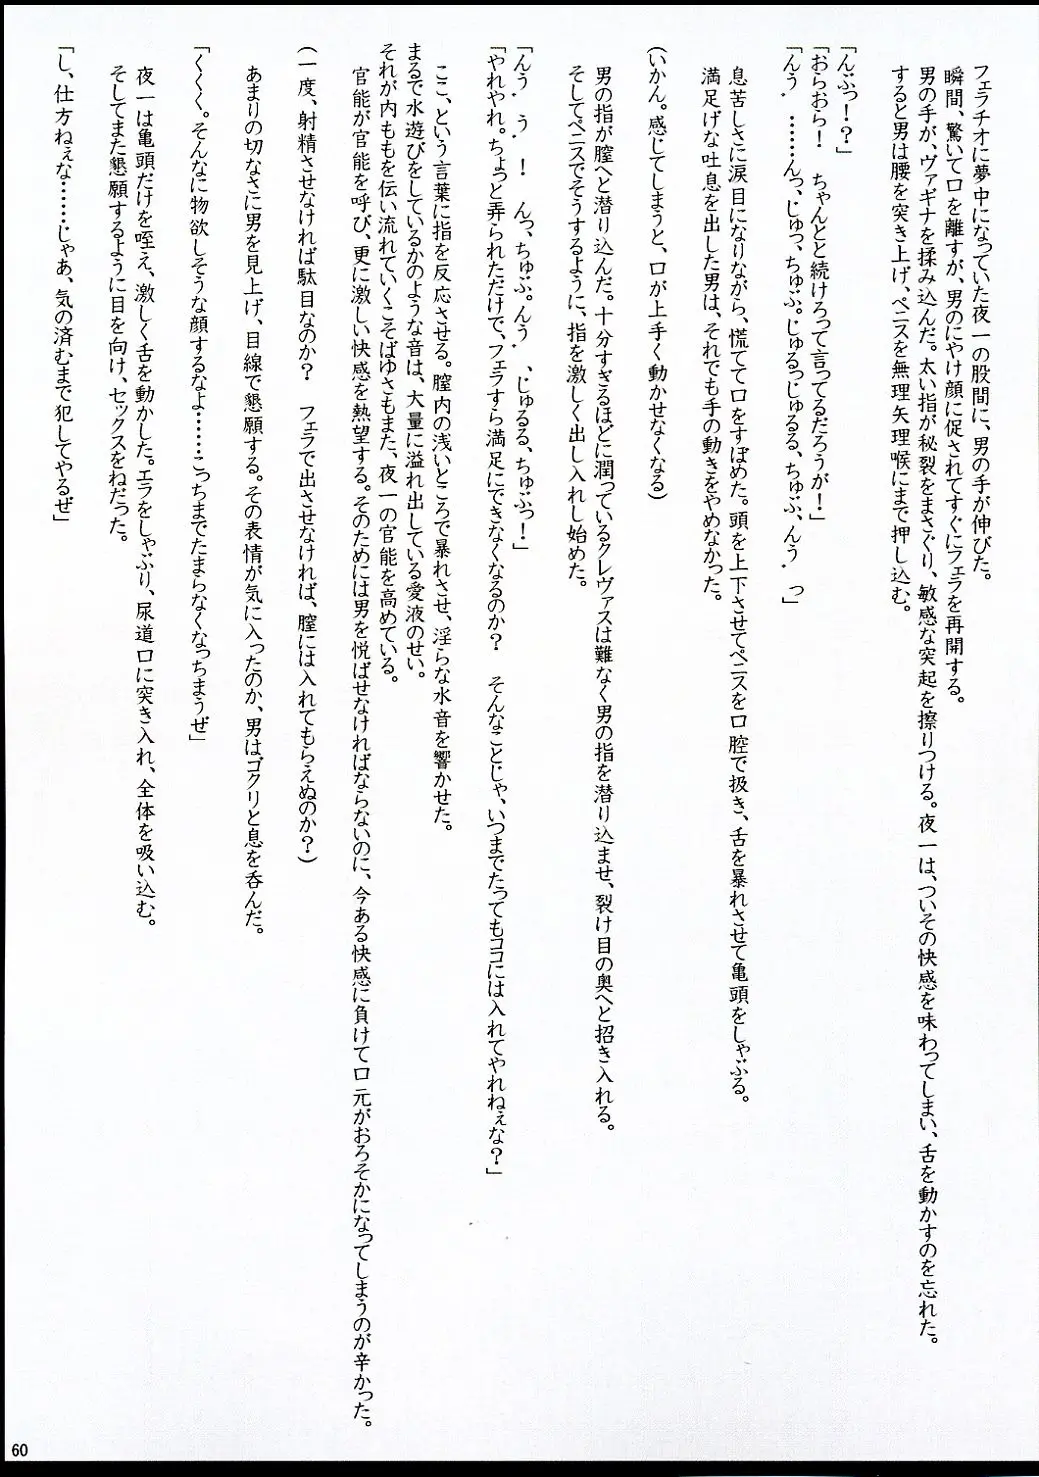 フェラチオに夢中になっていた夜一の股間に、男の手が伸びた。
瞬間、驚いて口を離すが、男のにやけ顔に促されてすぐにフェラを再開する。
男の手が、ヴァギナを揉み込んだ。太い指が秘裂をまさぐり、敏感な突起を擦りつける。夜一は、ついその快感を味わってしまい、舌を動かすのを忘れた。
すると男は腰を突き上げ、ペニスを無理矢理喉にまで押し込む。
「んぶっ！？」
「おらおら！　ちゃんとと続けろって言ってるだろうが！」
「んぅ゛、……んっ、じゅっ、ちゅぷ。じゅるっじゅるる、ちゅぷ、んぅ゛っ」
息苦しさに涙目になりながら、慌てて口をすぼめた。頭を上下させてペニスを口腔で扱き、舌を暴れさせて亀頭をしゃぶる。
満足げな吐息を出した男は、それでも手の動きをやめなかった。
(いかん。感じてしまうと、口が上手く動かせなくなる)
男の指が膣へと潜り込んだ。十分すぎるほどに潤っているクレヴァスは難なく男の指を潜り込ませ、裂け目の奥へと招き入れる。
そしてペニスでそうするように、指を激しく出し入れし始めた。
「んぅ゛、ぅ゛！　んっ、ちゅぷ。んぅ゛、じゅるる、ちゅぷっ！」
「やれやれ。ちょっと弄られただけで、フェラすら満足にできなくなるのか？　そんなことじゃ、いつまでたってもココには入れてやれねぇな？」
ここ、という言葉に指を反応させる。膣内の浅いところで暴れさせ、淫らな水音を響かせた。
まるで水遊びをしているかのような音は、大量に溢れ出している愛液のせい。
それが内ももを伝い流れていくこそばゆさもまた、夜一の官能を高めている。
官能が官能を呼び、更に激しい快感を熱望する。そのためには男を悦ばせなければならないのに、今ある快感に負けて口元がおろそかになってしまうのが辛かった。
(一度、射精させなければ駄目なのか？　フェラで出させなければ、膣には入れてもらえぬのか？)
あまりの切なさに男を見上げ、目線で懇願する。その表情が気に入ったのか、男はゴクリと息を呑んだ。
「くくく。そんなに物欲しそうな顔するなよ……こっちまでたまらなくなっちまうぜ」
夜一は亀頭だけを咥え、激しく舌を動かした。エラをしゃぶり、尿道口に突き入れ、全体を吸い込む。
そしてまた懇願するように目を向け、セックスをねだった。
「し、仕方ねぇな……じゃあ、気の済むまで犯してやるぜ」
60